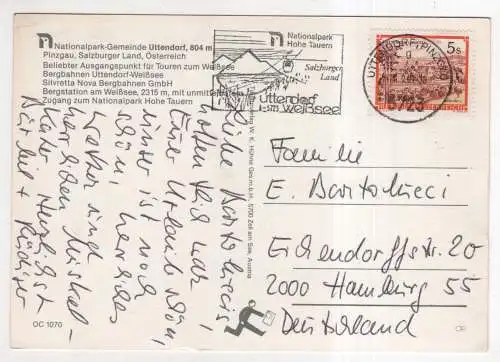 Nationalpark-Gemeinde Uttendorf, 804 m
Pinzgau, Salzburger Land, Österreich
Beliebter Ausgangspunkt für Touren zum Weißsee
Bergbahnen Uttendorf-Weißsee
Silvretta Nova Bergbahnen GmbH
Bergstation am Weißsee, 2315 m, mit unmittelbarem
Zugang zum Nationalpark Hohe Tauern
Nationalpark
Hohe Tauern
Salzburger
Land
A-5723
uttendorf
weißsee
UTTENDORF, PINZGAU
5723
5s
Liebe Bartolmeci's!
hoffen Euch war
Euer Urlaub schön,
unser ist noch
schön, herrliches
Wetter und
herrlichen
Herzlichst
Familie
E. Bartolmeci
Eichendorffstr. 20
2000 Hamburg 55
Deutschland
5700 Zell am See, Austria
OC 1070